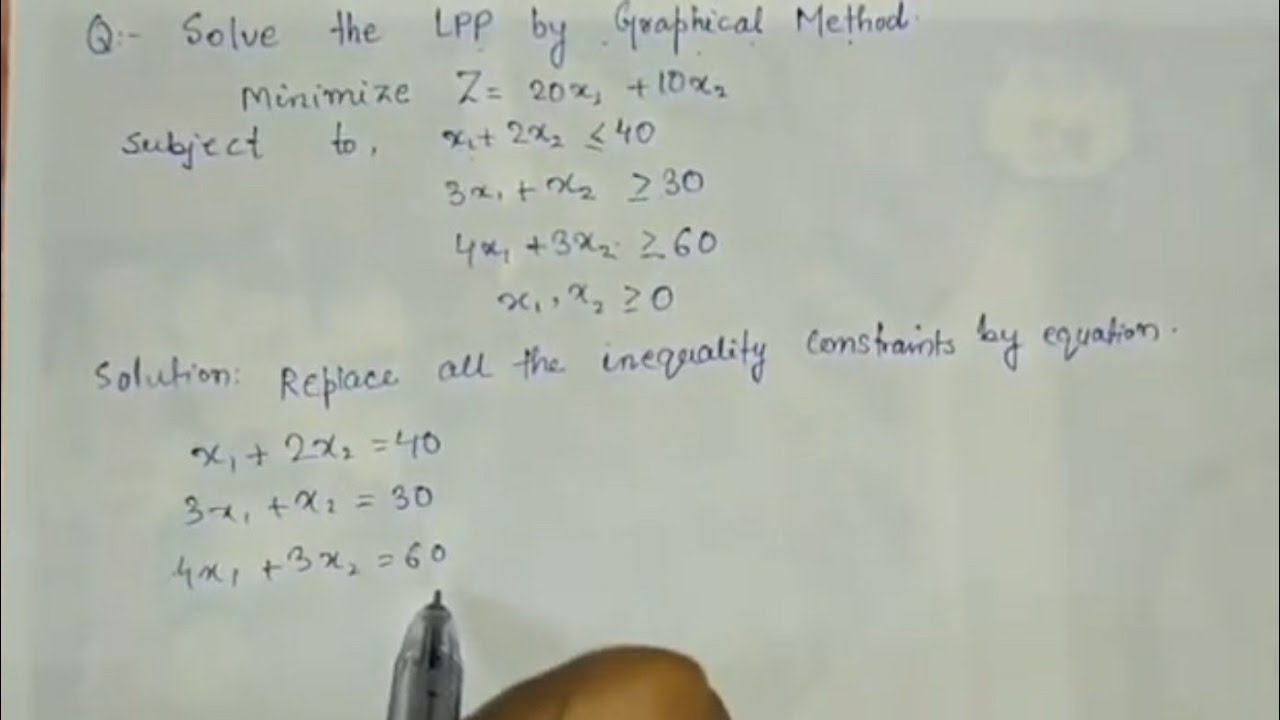 Q:- Solve the LPP by Graphical Method.
Minimize Z = 20x₁ + 10x₂
Subject to, x₁ + 2x₂ ≤ 40
3x₁ + x₂ ≥ 30
4x₁ + 3x₂ ≥ 60
x₁, x₂ ≥ 0
Solution: Replace all the inequality constraints by equation.
x₁ + 2x₂ = 40
3x₁ + x₂ = 30
4x₁ + 3x₂ = 60